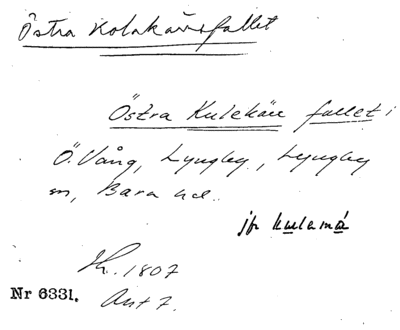 Östra Kolakärsfallet
Östra Kulekärr fallet i
Ö. Vång, Lyngby, Lyngby
sn, Bara hd.
jfr kulamá
1807
Nr 6331. Akt 7.